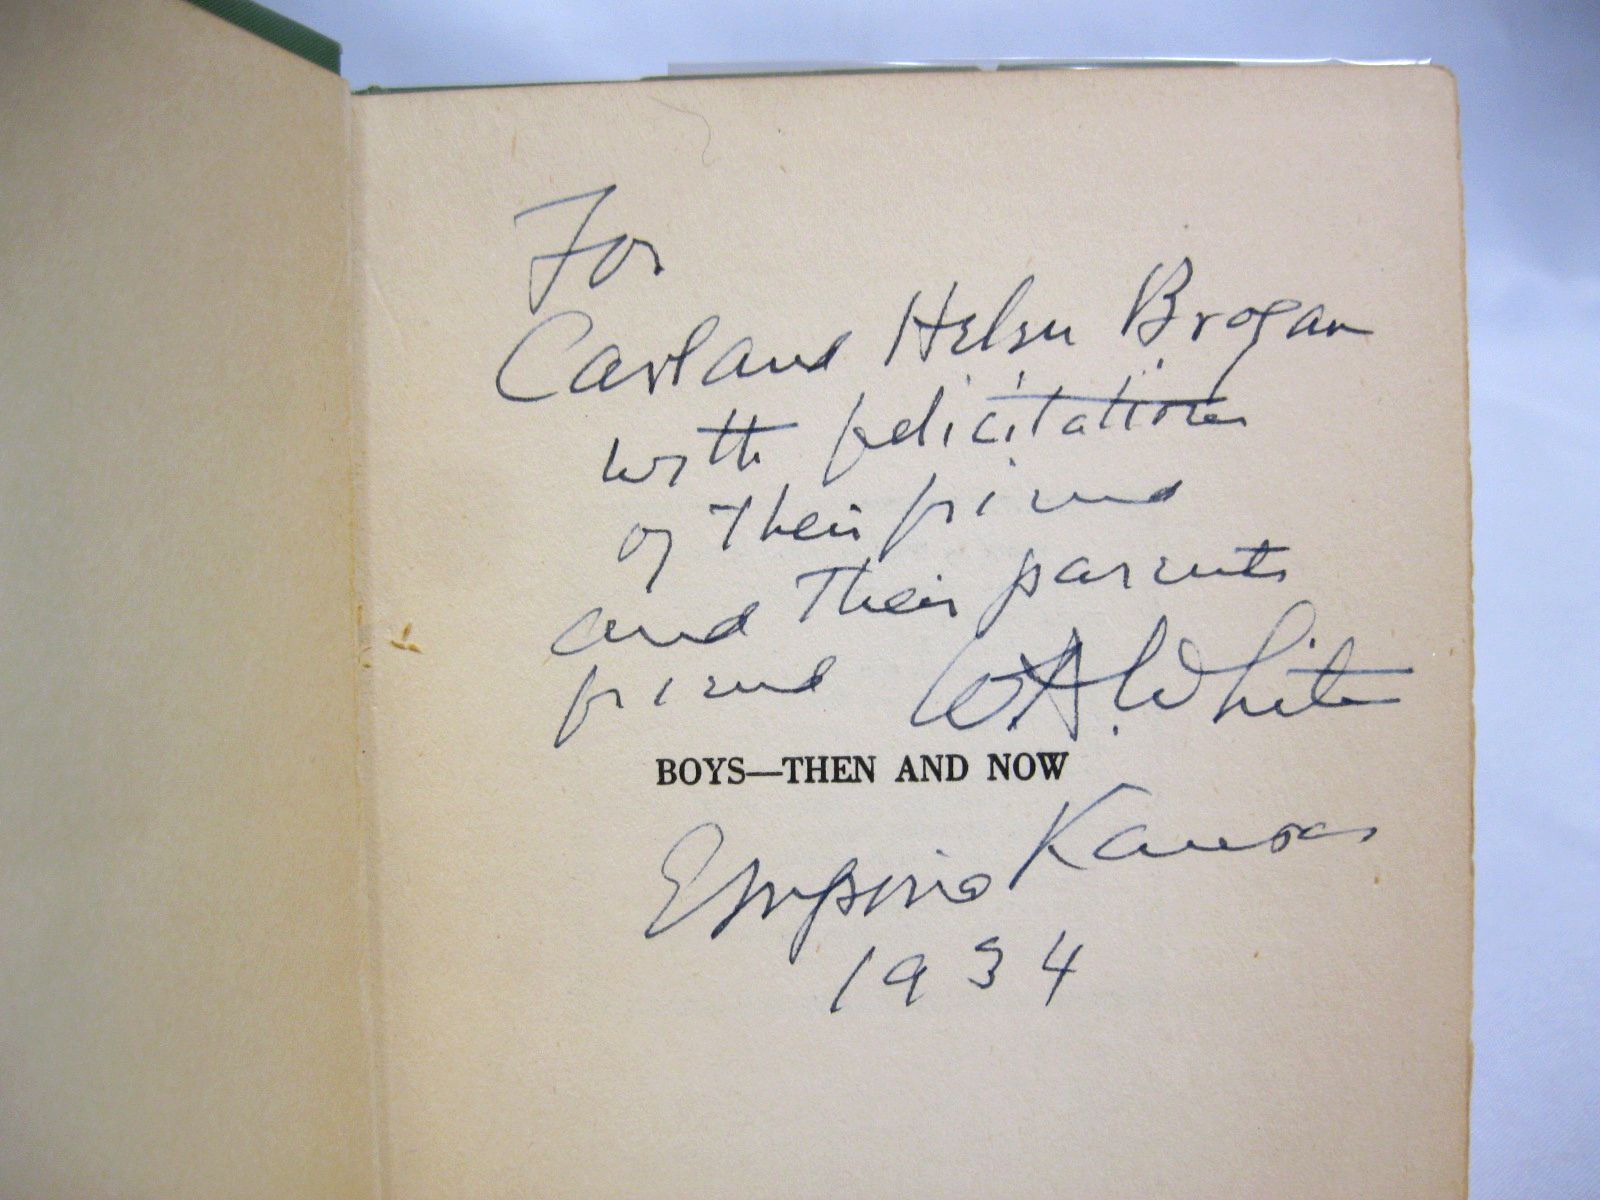 For
Carl and Helen Brogan
with felicitations
of their friend
and their parents
friend W.A. White
BOYS—THEN AND NOW
Emporia Kansas
1934